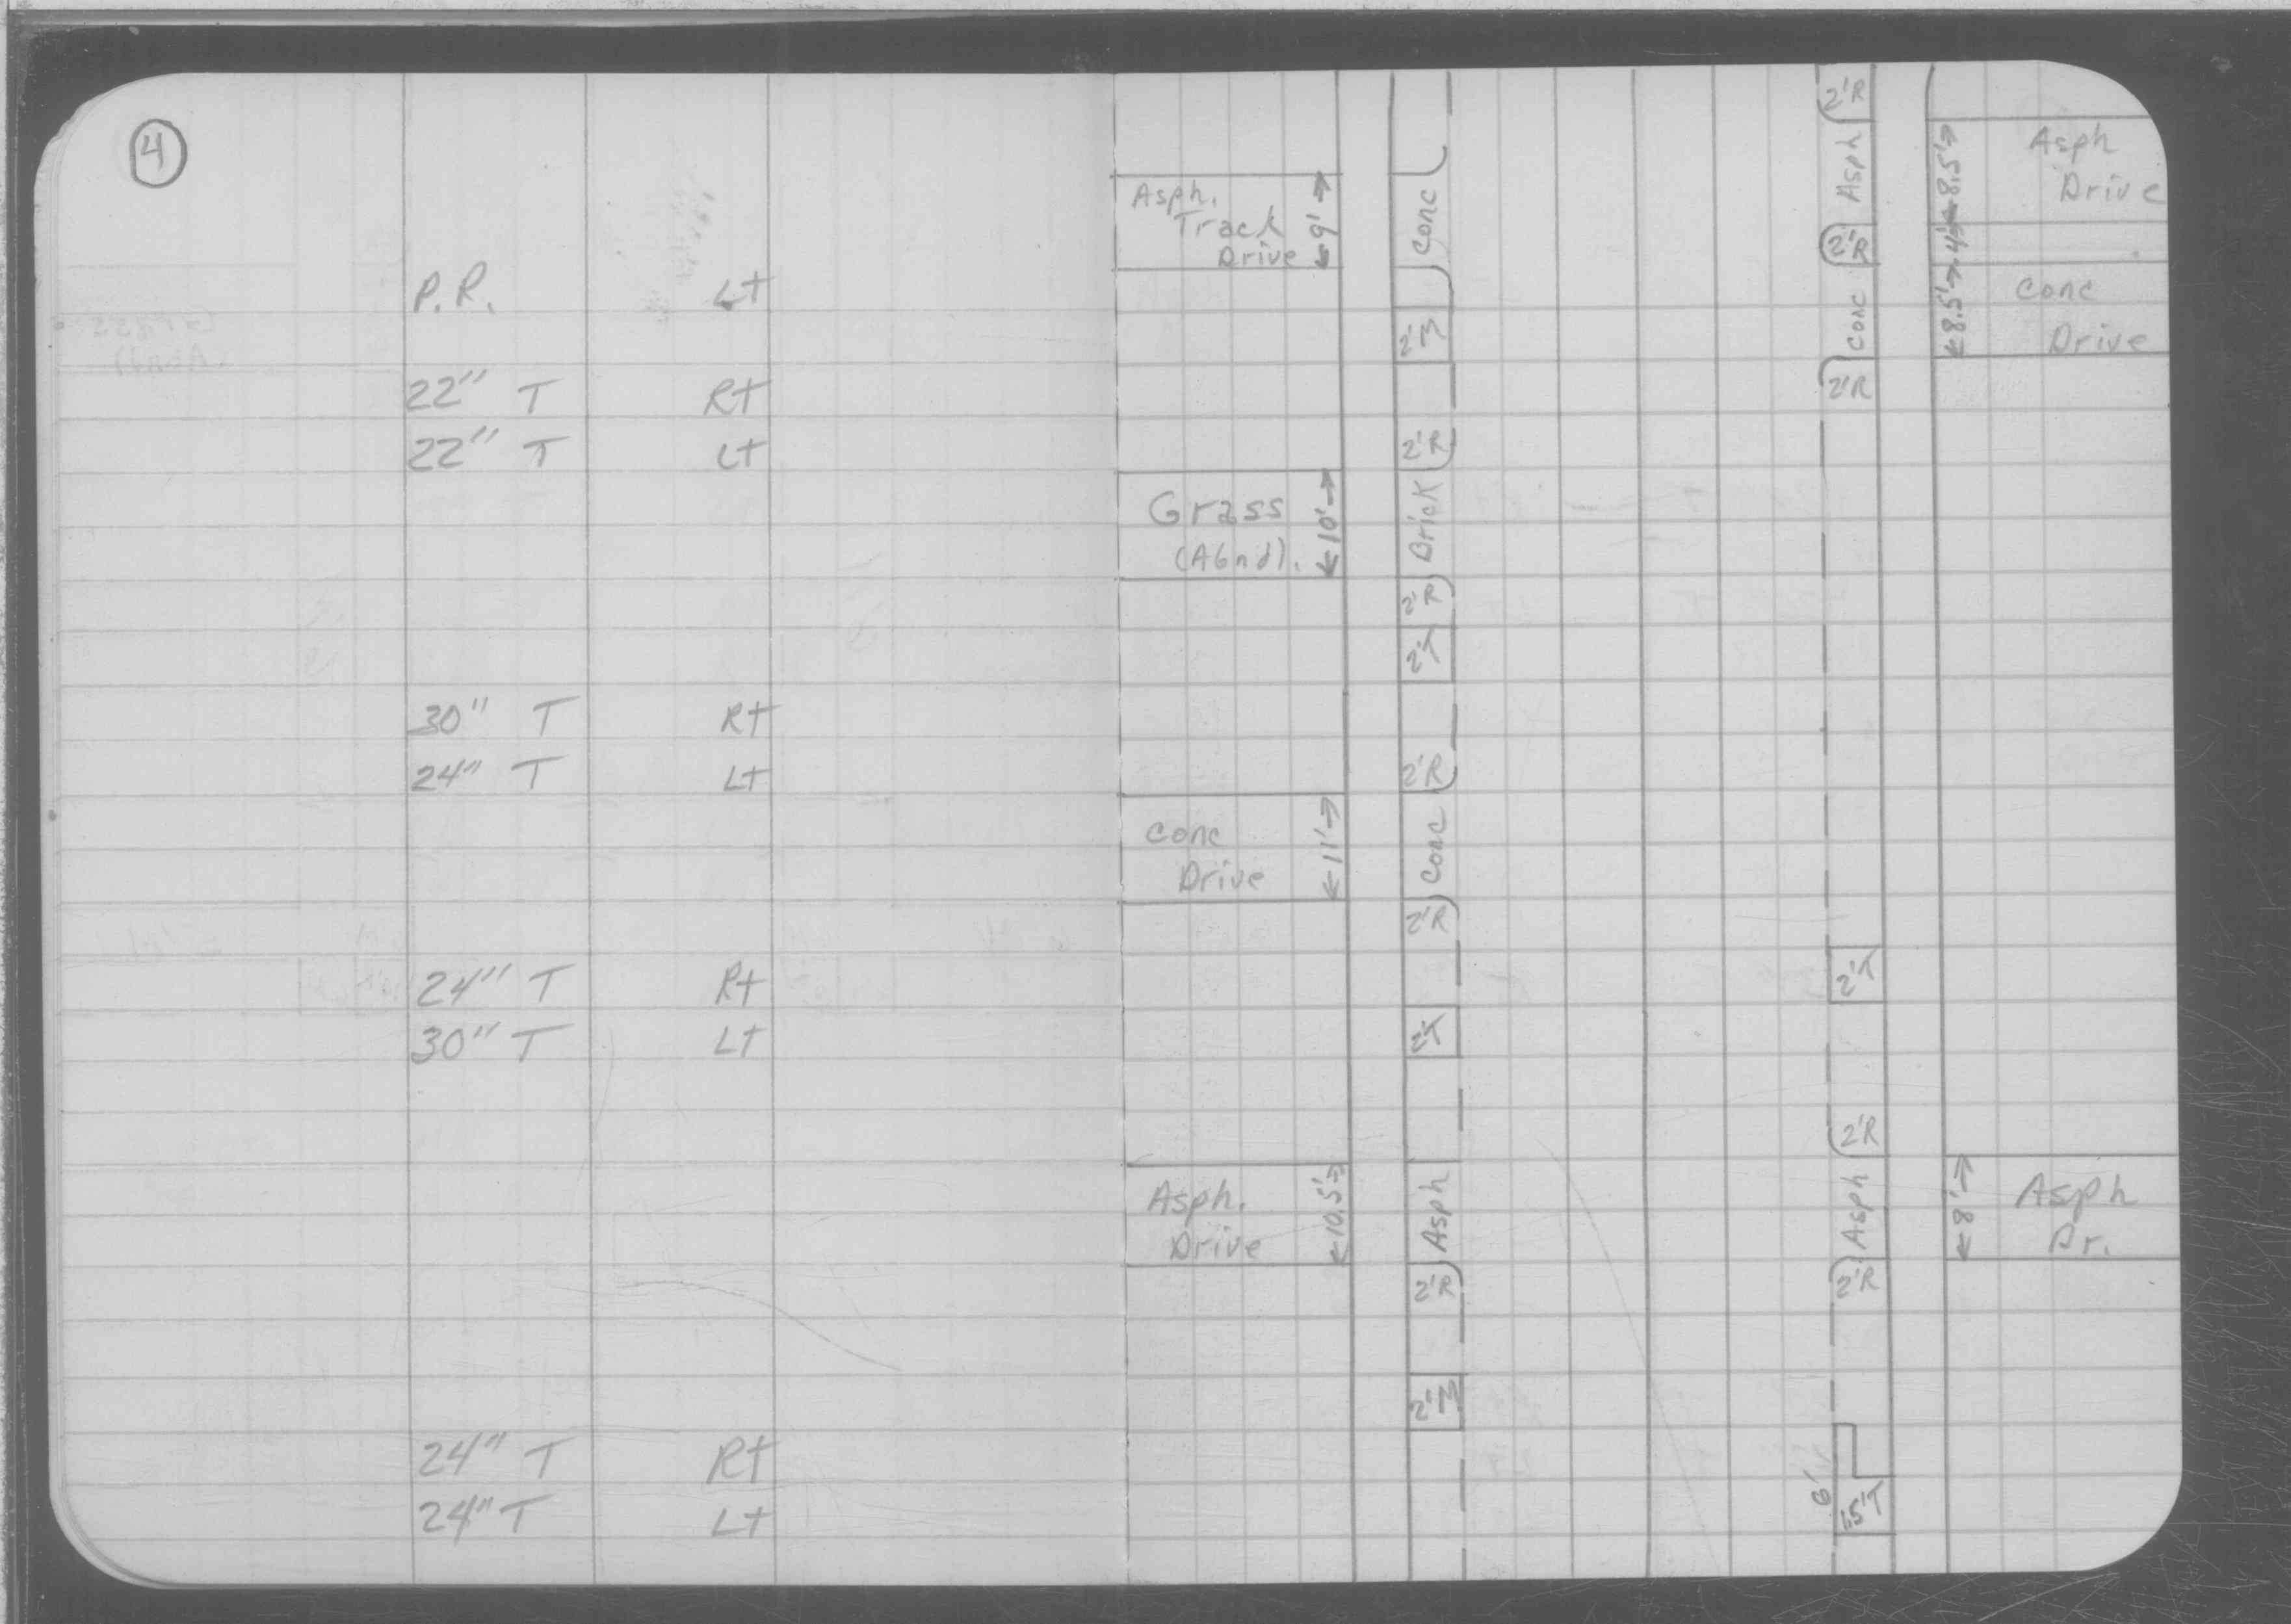 4
P.R. Lt
22" T Rt
22" T Lt
30" T Rt
24" T Lt
24" T Rt
30" T Lt
24" T Rt
24" T Lt
Asph.
Track
Drive
9'
Conc
2'M
2'R
Grass
(Abnd).
10'
Brick
2'R
2'T
2'R
Conc
Drive
11'
Conc
2'R
2'T
Asph.
Drive
10.5'
Asph
2'R
2'M
2'R
Asph
8.5'
Asph
Drive
2'R
4'
Conc
8.5'
Conc
Drive
2'R
2'T
2'R
Asph
8'
Asph
Dr.
2'R
6'
1.5'T